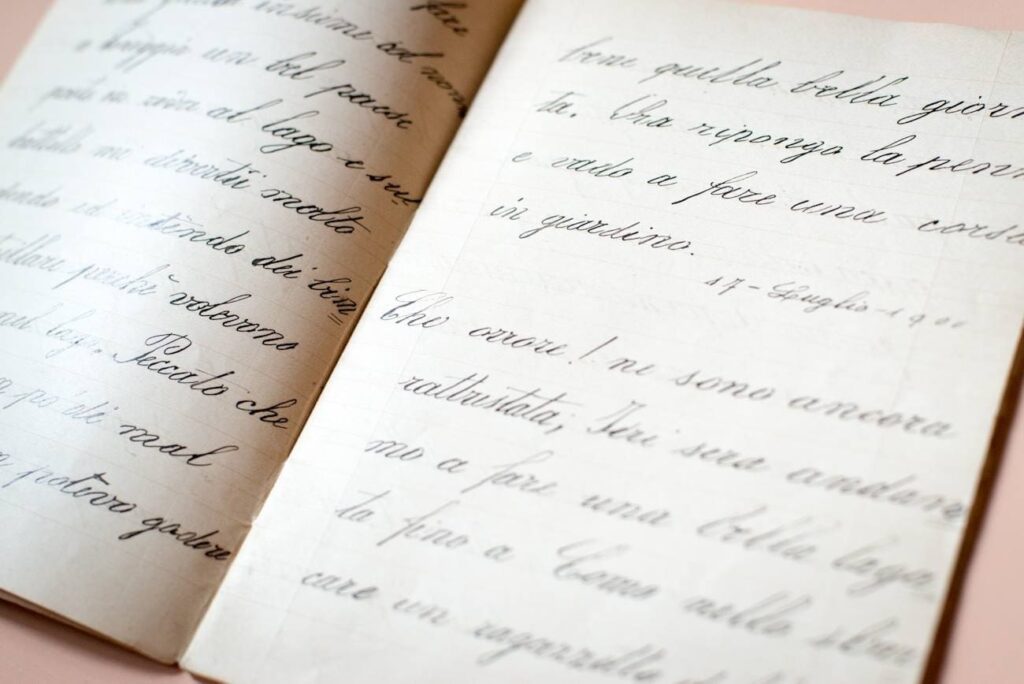 fare
insieme col nonno
a Viaggia un bel paese
al lago e sul
battello mi divertii molto
ed sentendo dei bim
strillare perchè volevano
nel lago. Peccato che
un po' di mal
potevo godere
bene quella bella giorn
ta. Ora ripongo la penn
e vado a fare una corsa
in giardino.
17 - Luglio - 19
Che orrore! ne sono ancora
rattristata; Ieri sera andam
mo a fare una bella
ta fino a Como nella
care un ragazzello